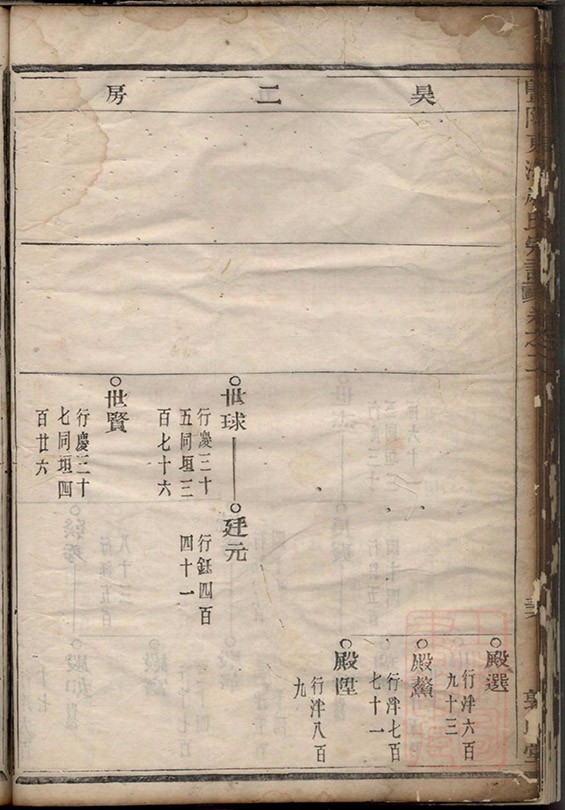 昊二房
殿選
行泮六百
九十三
殿鰲
行泮七百
七十一
殿陞
行泮八百
九
世球
行慶三十
五同垣三
百七十六
廷元
行鈺四百
四十一
世賢
行慶三十
七同垣四
百廿六